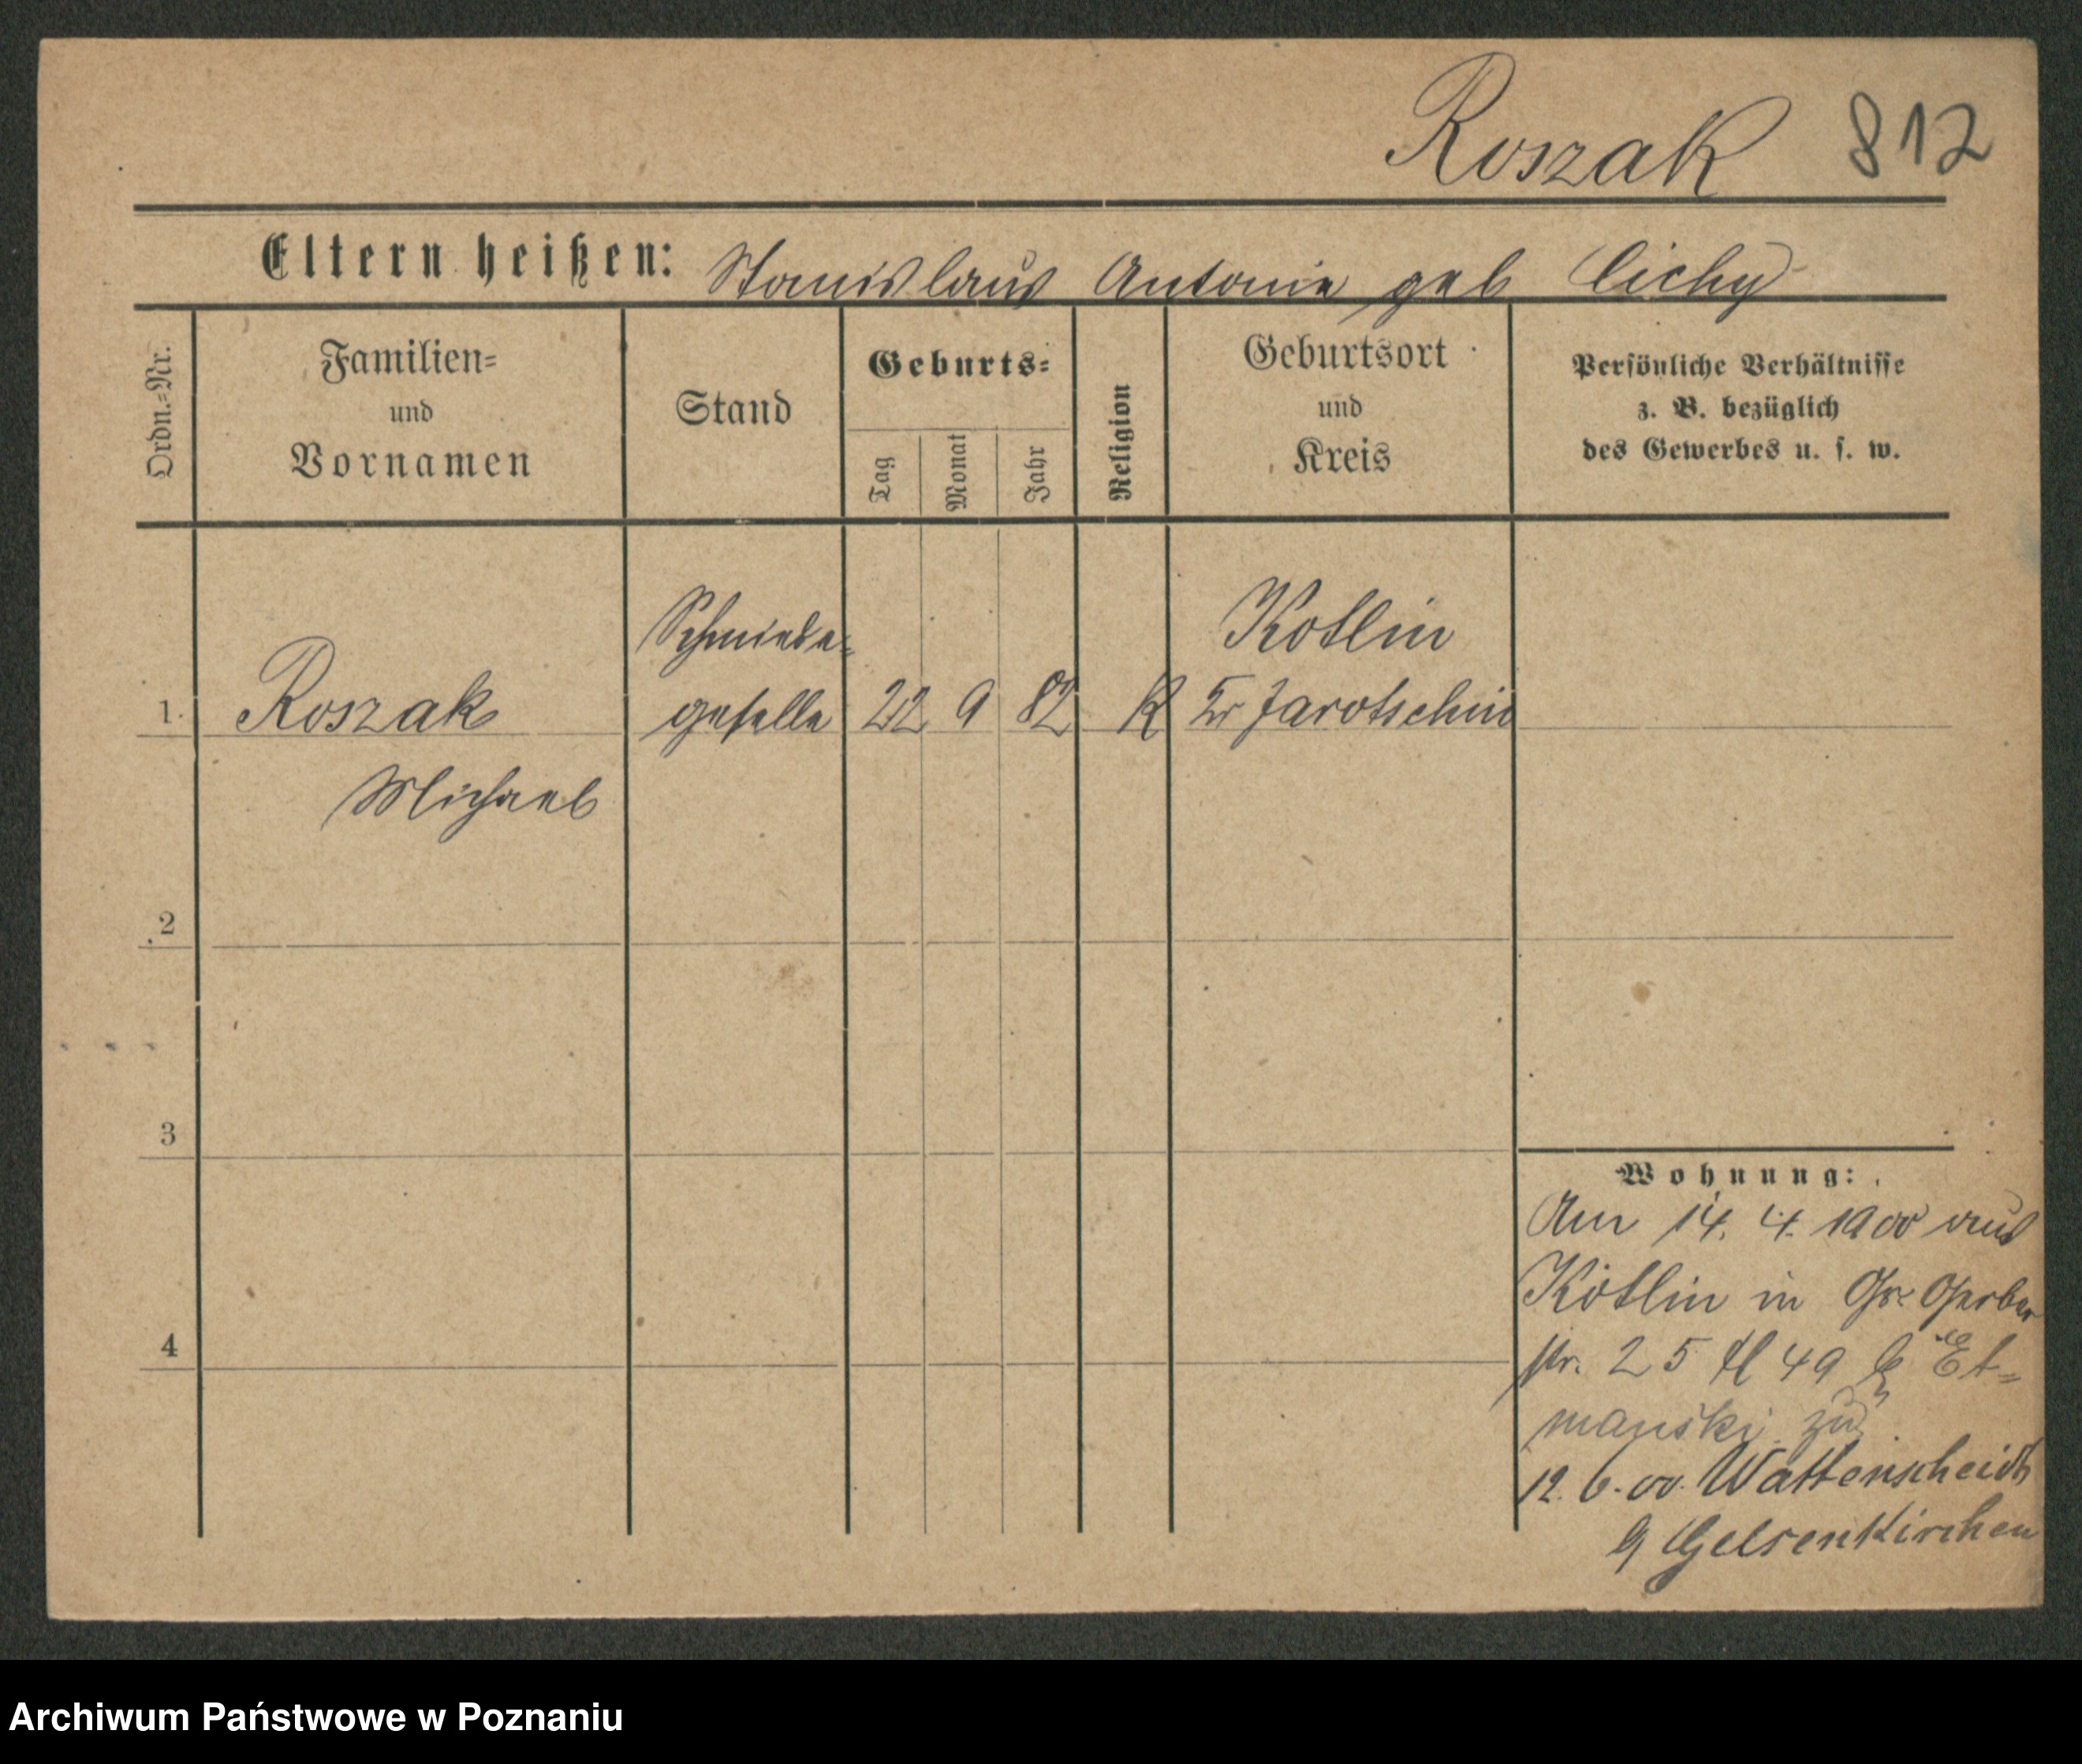 Roszak 812
Eltern heißen: Stanislaus Antonie geb Cichy
Ordn.-Nr.
Familien-
und
Vornamen
Stand
Geburts-
Tag
Monat
Jahr
Religion
Geburtsort
und
Kreis
Persönliche Verhältnisse
z. B. bezüglich
des Gewerbes u. s. w.
Schmiede-
Kotlin
1. Roszak geselle 22 9 82 K Kr Jarotschin
Michael
2
3
4
Wohnung:
Am 14. 4. 1900 aus
Kotlin in Gr. Gerber
str. 25 49 b Et-
manski zu
12. 6. 00. Wattenscheidt
Gelsenkirchen
Archiwum Państwowe w Poznaniu